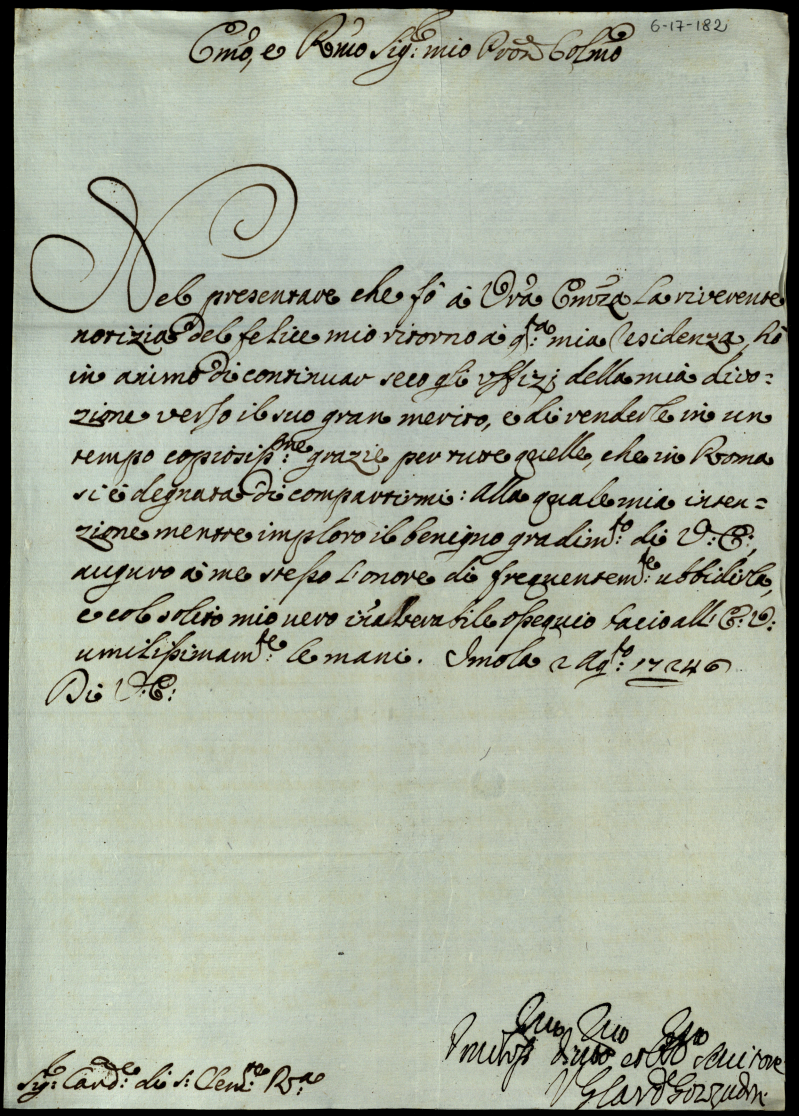 6-17-182
Emo, e Rmo Sig:re mio Pron Colmo
Nel presentare che fò à Vra Emza la riverente
notizia del felice mio ritorno à q:ta mia Residenza, hò
in animo di continuar seco gli uffizj della mia divo=
zione verso il suo gran merito, e di renderle in un
tempo copiosiss:me grazie per tutte quelle, che in Roma
si è degnata di compartirmi: alla quale mia inten=
zione mentre imploro il benigno gradim:to di V:E:,
auguro à me stesso l'onore di frequentem:te ubbidirla,
e col solito mio vero inalterabile ossequio bacio all' E: V:
umilissimam:te le mani. Imola 2 Ag:to 1724
Di V:E:
Sig:re Card:e di S: Clem:te R:a
Servitore
Card Gozzadin: